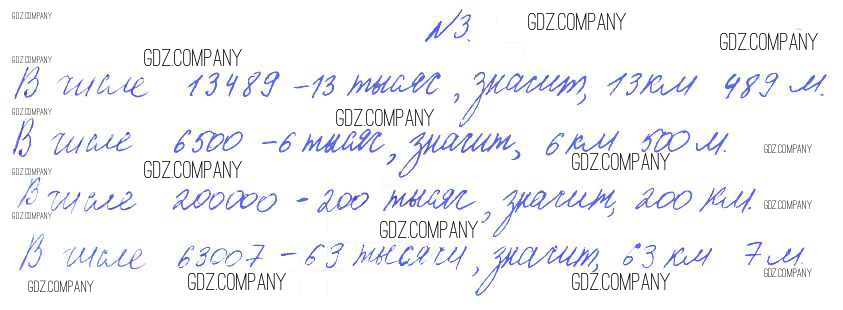 GDZ.COMPANY
№3.
GDZ.COMPANY
GDZ.COMPANY
GDZ.COMPANY
GDZ.COMPANY
В числе 13489 – 13 тысяч, значит, 13 км 489 м.
GDZ.COMPANY
GDZ.COMPANY
В числе 6500 – 6 тысяч, значит, 6 км 500 м.
GDZ.COMPANY
GDZ.COMPANY
GDZ.COMPANY
GDZ.COMPANY
В числе 200000 – 200 тысяч, значит, 200 км.
GDZ.COMPANY
GDZ.COMPANY
GDZ.COMPANY
В числе 63007 – 63 тысячи, значит, 63 км 7 м.
GDZ.COMPANY
GDZ.COMPANY
GDZ.COMPANY
GDZ.COMPANY